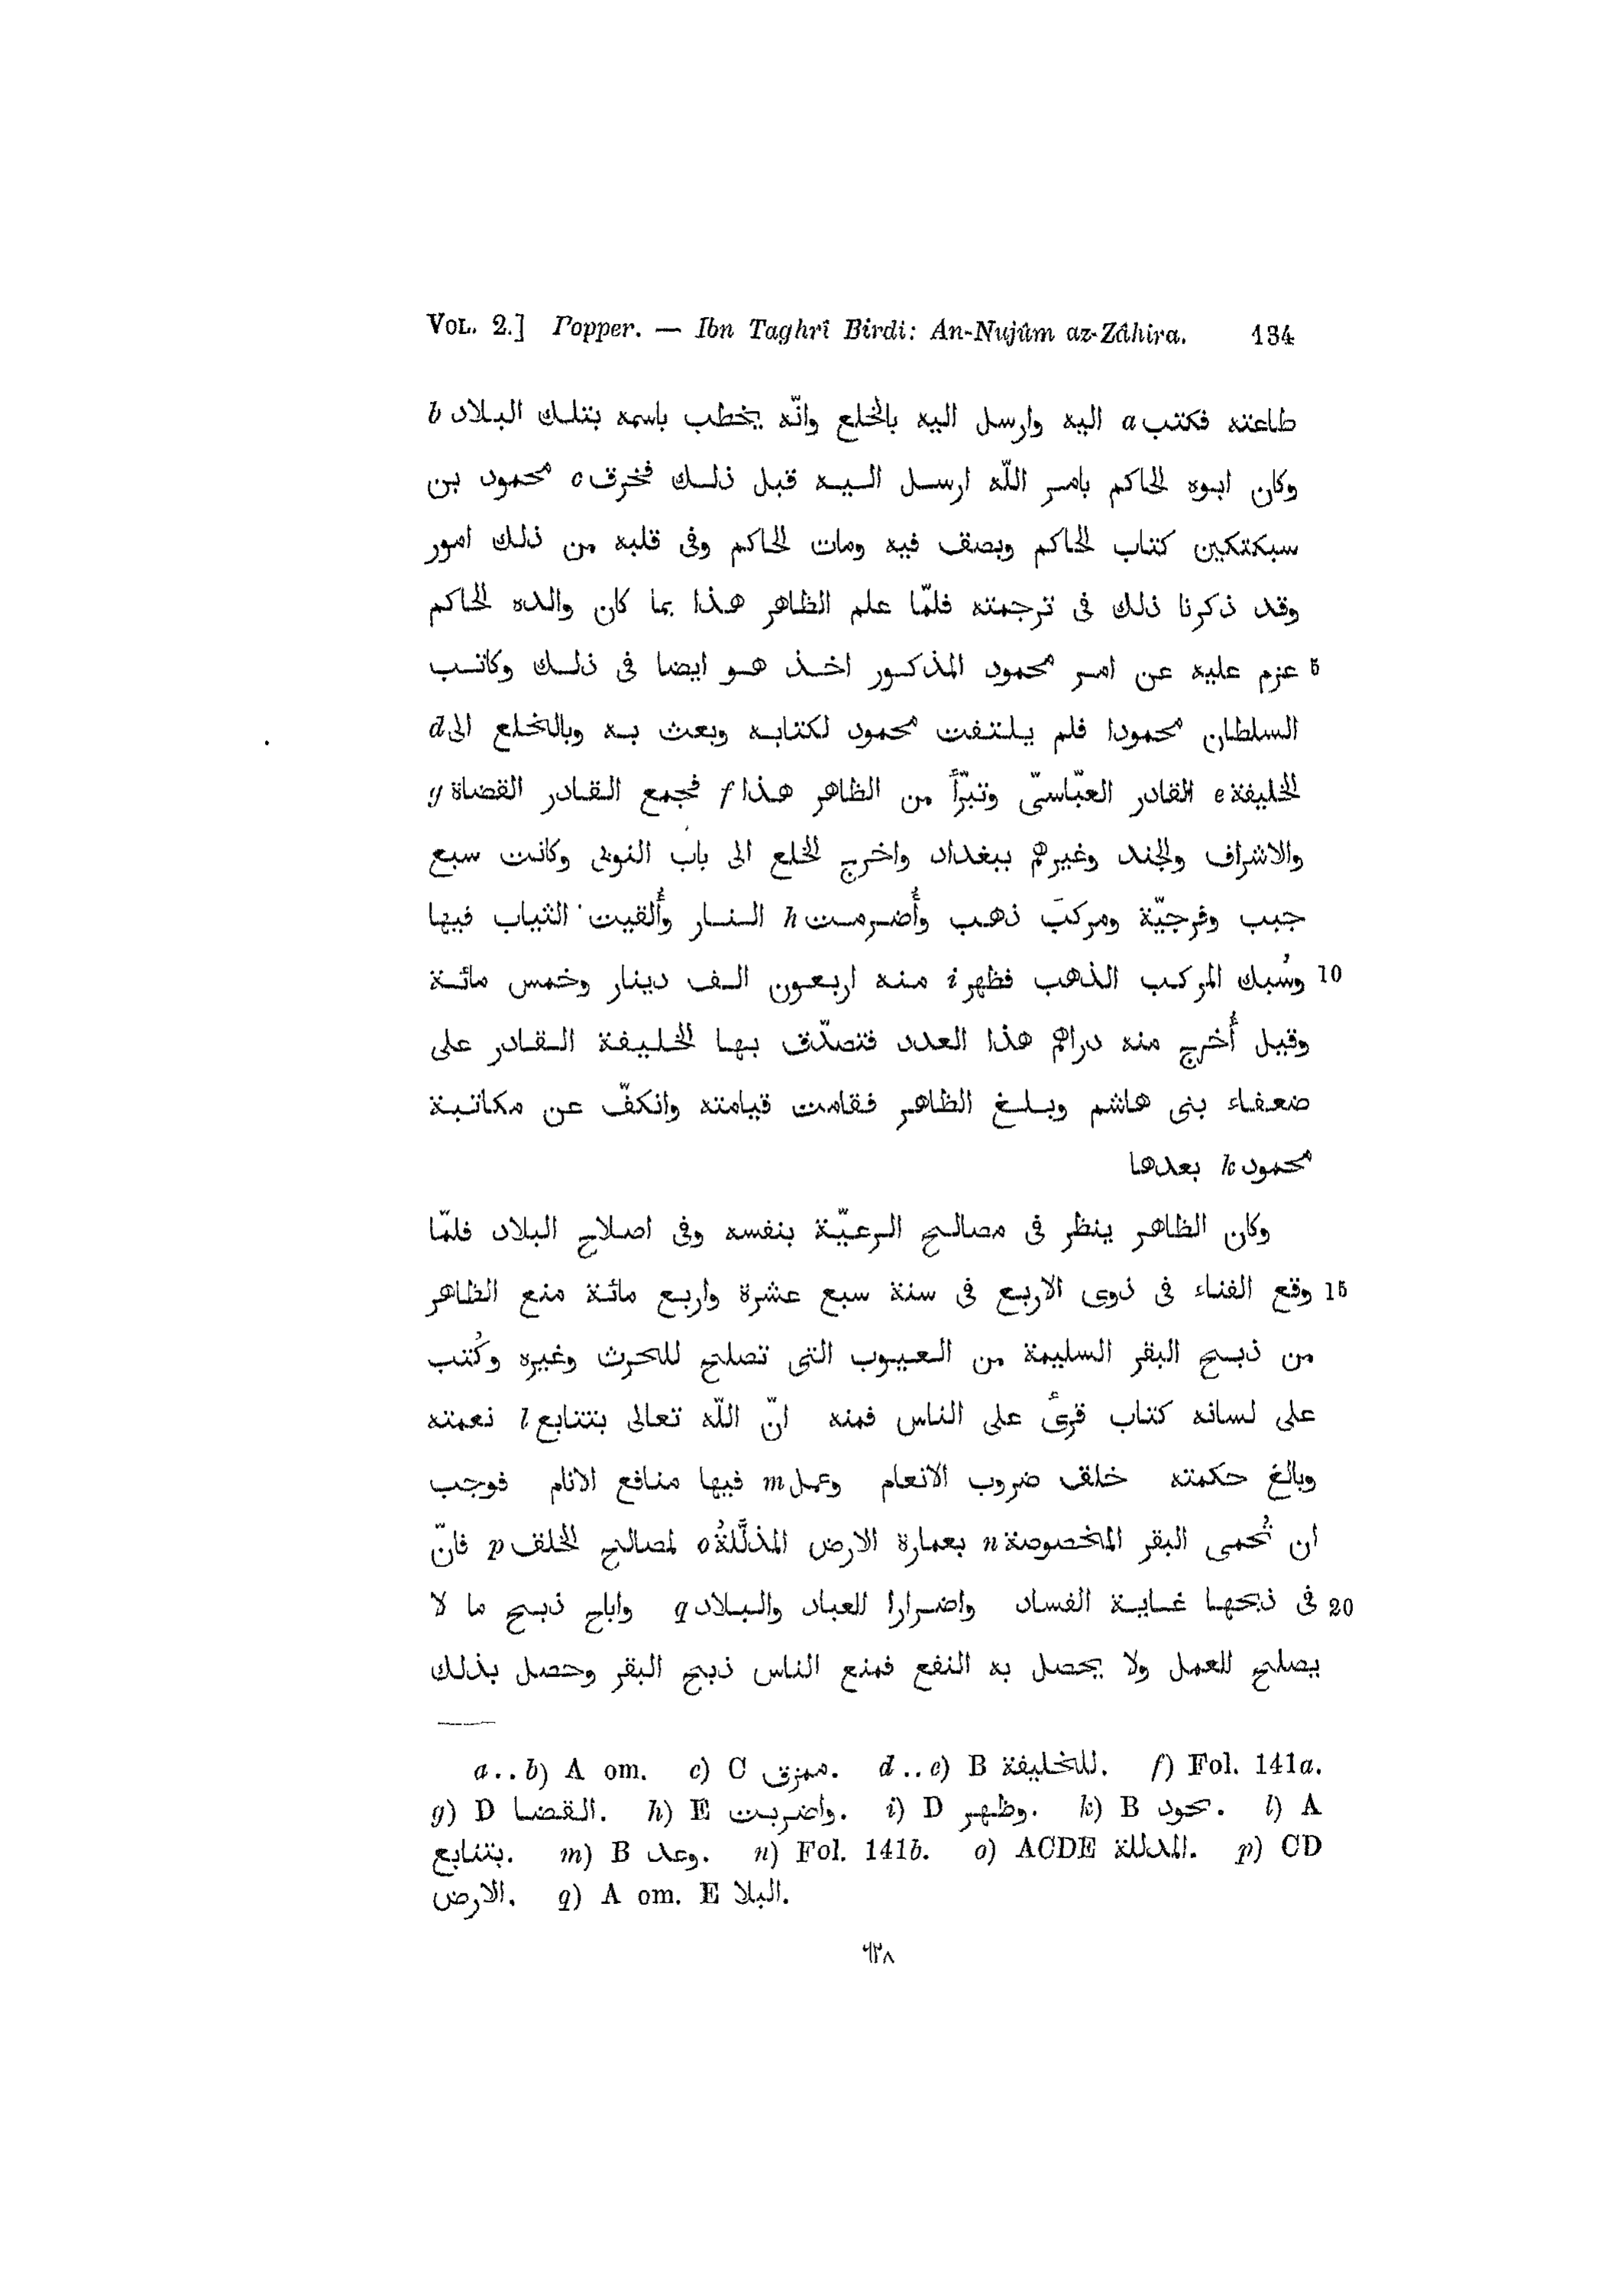 VOL. 2.] Popper. — Ibn Taghrî Birdi: An-Nujûm az-Zâhira. 134
طاعته فكتب a اليه وارسل اليه بالخلع وانّه يخطب باسمه بتلك البلاد b
وكان ابوه الحاكم بامر اللّه ارسل اليه قبل ذلك فخرق c محمود بن
سبكتكين كتاب الحاكم وبصق فيه ومات الحاكم وفى قلبه من ذلك امور
وقد ذكرنا ذلك فى ترجمته فلمّا علم الظاهر هذا بما كان والده الحاكم
5 عزم عليه عن امر محمود المذكور اخذ هو ايضا فى ذلك وكاتب
السلطان محمودا فلم يلتفت محمود لكتابه وبعث به وبالخلع الى d
الخليفة e القادر العبّاسىّ وتبرّأ من الظاهر هذا f فجمع القادر القضاة g
والاشراف والجند وغيرهم ببغداد واخرج الخلع الى باب النوبى وكانت سبع
جبب وفرجيّة ومركبَ ذهب وأُضرمت h النار وأُلقيت الثياب فيها
10 وسُبك المركب الذهب فظهر i منه اربعون الف دينار وخمس مائة
وقيل أُخرج منه دراهم هذا العدد فتصدّق بها الخليفة القادر على
ضعفاء بنى هاشم وبلغ الظاهر فقامت قيامته وانكفّ عن مكاتبة
محمود k بعدها
وكان الظاهر ينظر فى مصالح الرعيّة بنفسه وفى اصلاح البلاد فلمّا
15 وقع الفناء فى ذوى الاربع فى سنة سبع عشرة واربع مائة منع الظاهر
من ذبح البقر السليمة من العيوب التى تصلح للحرث وغيره وكُتب
على لسانه كتاب قرئ على الناس فمنه انّ اللّه تعالى بتتابع l نعمته
وبالغ حكمته خلق ضروب الانعام وعمل m فيها منافع الانام فوجب
ان تُحمى البقر المخصوصة n بعمارة الارض المذلَّلةُ o لمصالح الخلق p فانّ
20 فى ذبحها غاية الفساد واضرارا للعباد والبلاد q واباح ذبح ما لا
يصلح للعمل ولا يحصل به النفع فمنع الناس ذبح البقر وحصل بذلك
a..b) A om. c) C ممزق. d..e) B للخليفة. f) Fol. 141a.
g) D القضا. h) E واضربت. i) D وظهر. k) B حود. l) A
بتنابع. m) B وعد. n) Fol. 141b. o) ACDE المدللة. p) CD
الارض. q) A om. E البلا.
٦٢٨